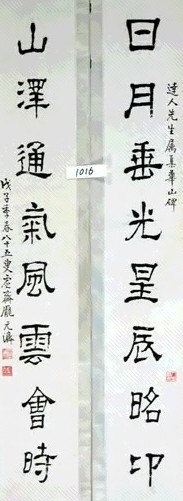 達人先生属集華山碑
日月垂光星辰昭卬
山澤通氣風雲會時
戊子季春八十五叟虚齋龐元濟
1016